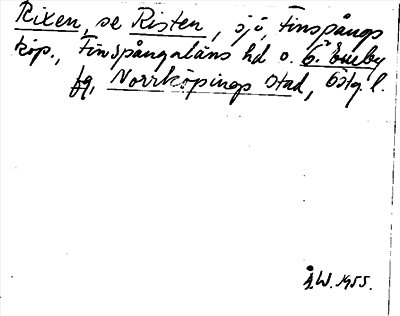 Rixen, se Risten, sjö, Finspångs
köp., Finspångaläns hd o. Ö. Eneby
fg, Norrköpings stad, Östg. l.
Å.W. 1955.